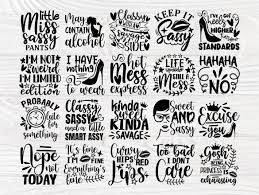 little
Miss
Sassy
PANTS
MAY
CONTAIN
alcohol
Classy
with a
SAVAGE
SIDE
KEEP IT
Sassy
I've got
HEELS
HIGHER
than your
STANDARDS
I'M NOT
weird
I'M LIMITED
edition
I HAVE
nothing
TO WEAR
hot
MESS
EXPRESS
LIFE
IS SHORT
STILL
MESS
HAHAHA
NO
PROBABLY
late
for
something
CLASSY
SASSY
and a little
SMART ASSY
kinda
sweet
KINDA
SAVAGE
SWEET
AND
SASSY
Excuse
you
Nope
not
TODAY
It's fine
I'm fine
Curvy
HIPS
Red
Lips
Too bad
I DON'T
CARE
GODDESS
exhausting